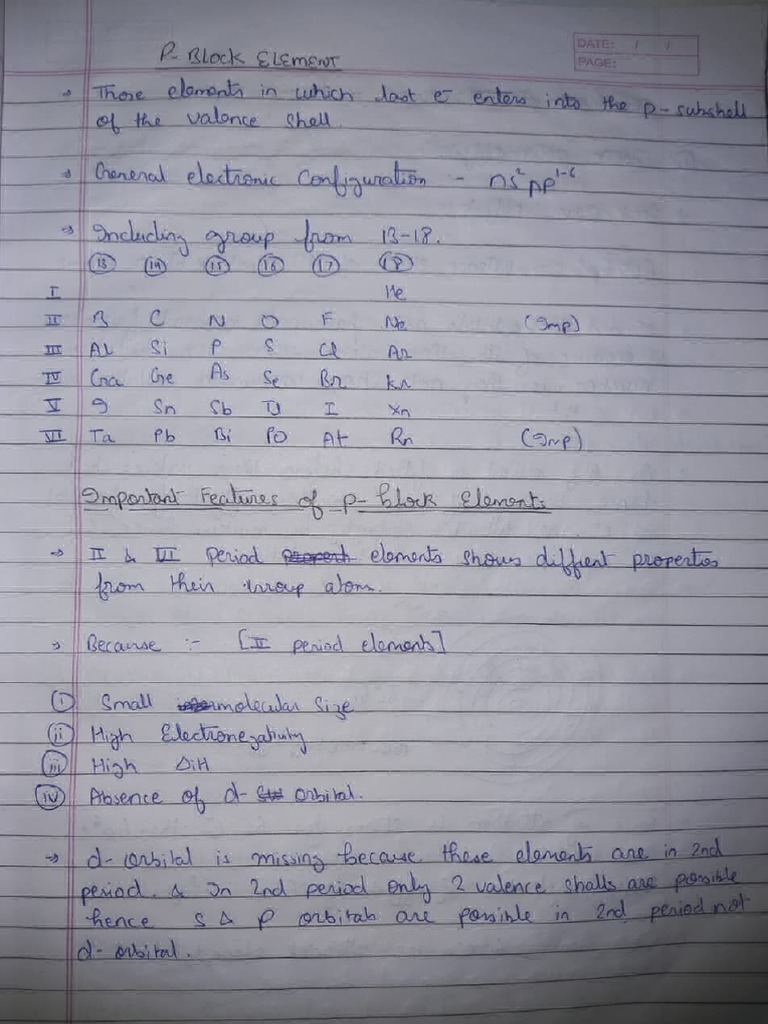 DATE: / /
PAGE:
P-BLOCK ELEMENT
→ Those elements in which last e⁻ enters into the p-subshell
of the valence shell.
→ General electronic configuration - ns²np¹⁻⁶
→ Including group from 13-18.
⑬ ⑭ ⑮ ⑯ ⑰ ⑱
I He
II B C N O F Ne (Imp)
III Al Si P S Cl Ar
IV Ga Ge As Se Br Kr
V Sn Sb I Xn
VI Ta Pb Bi Po At Rn (Imp)
Important Features of p-block Elements
→ II & VI period elements shows diffient properties
from their group atom.
→ Because :- [II period elements]
(i) Small molecular size
(ii) High Electronegativity
(iii) High ΔiH
(iv) Absence of d- orbital.
→ d-orbital is missing because these elements are in 2nd
period. & In 2nd period only 2 valence shalls are possible
hence s & p orbitals are possible in 2nd period not
d-orbital.